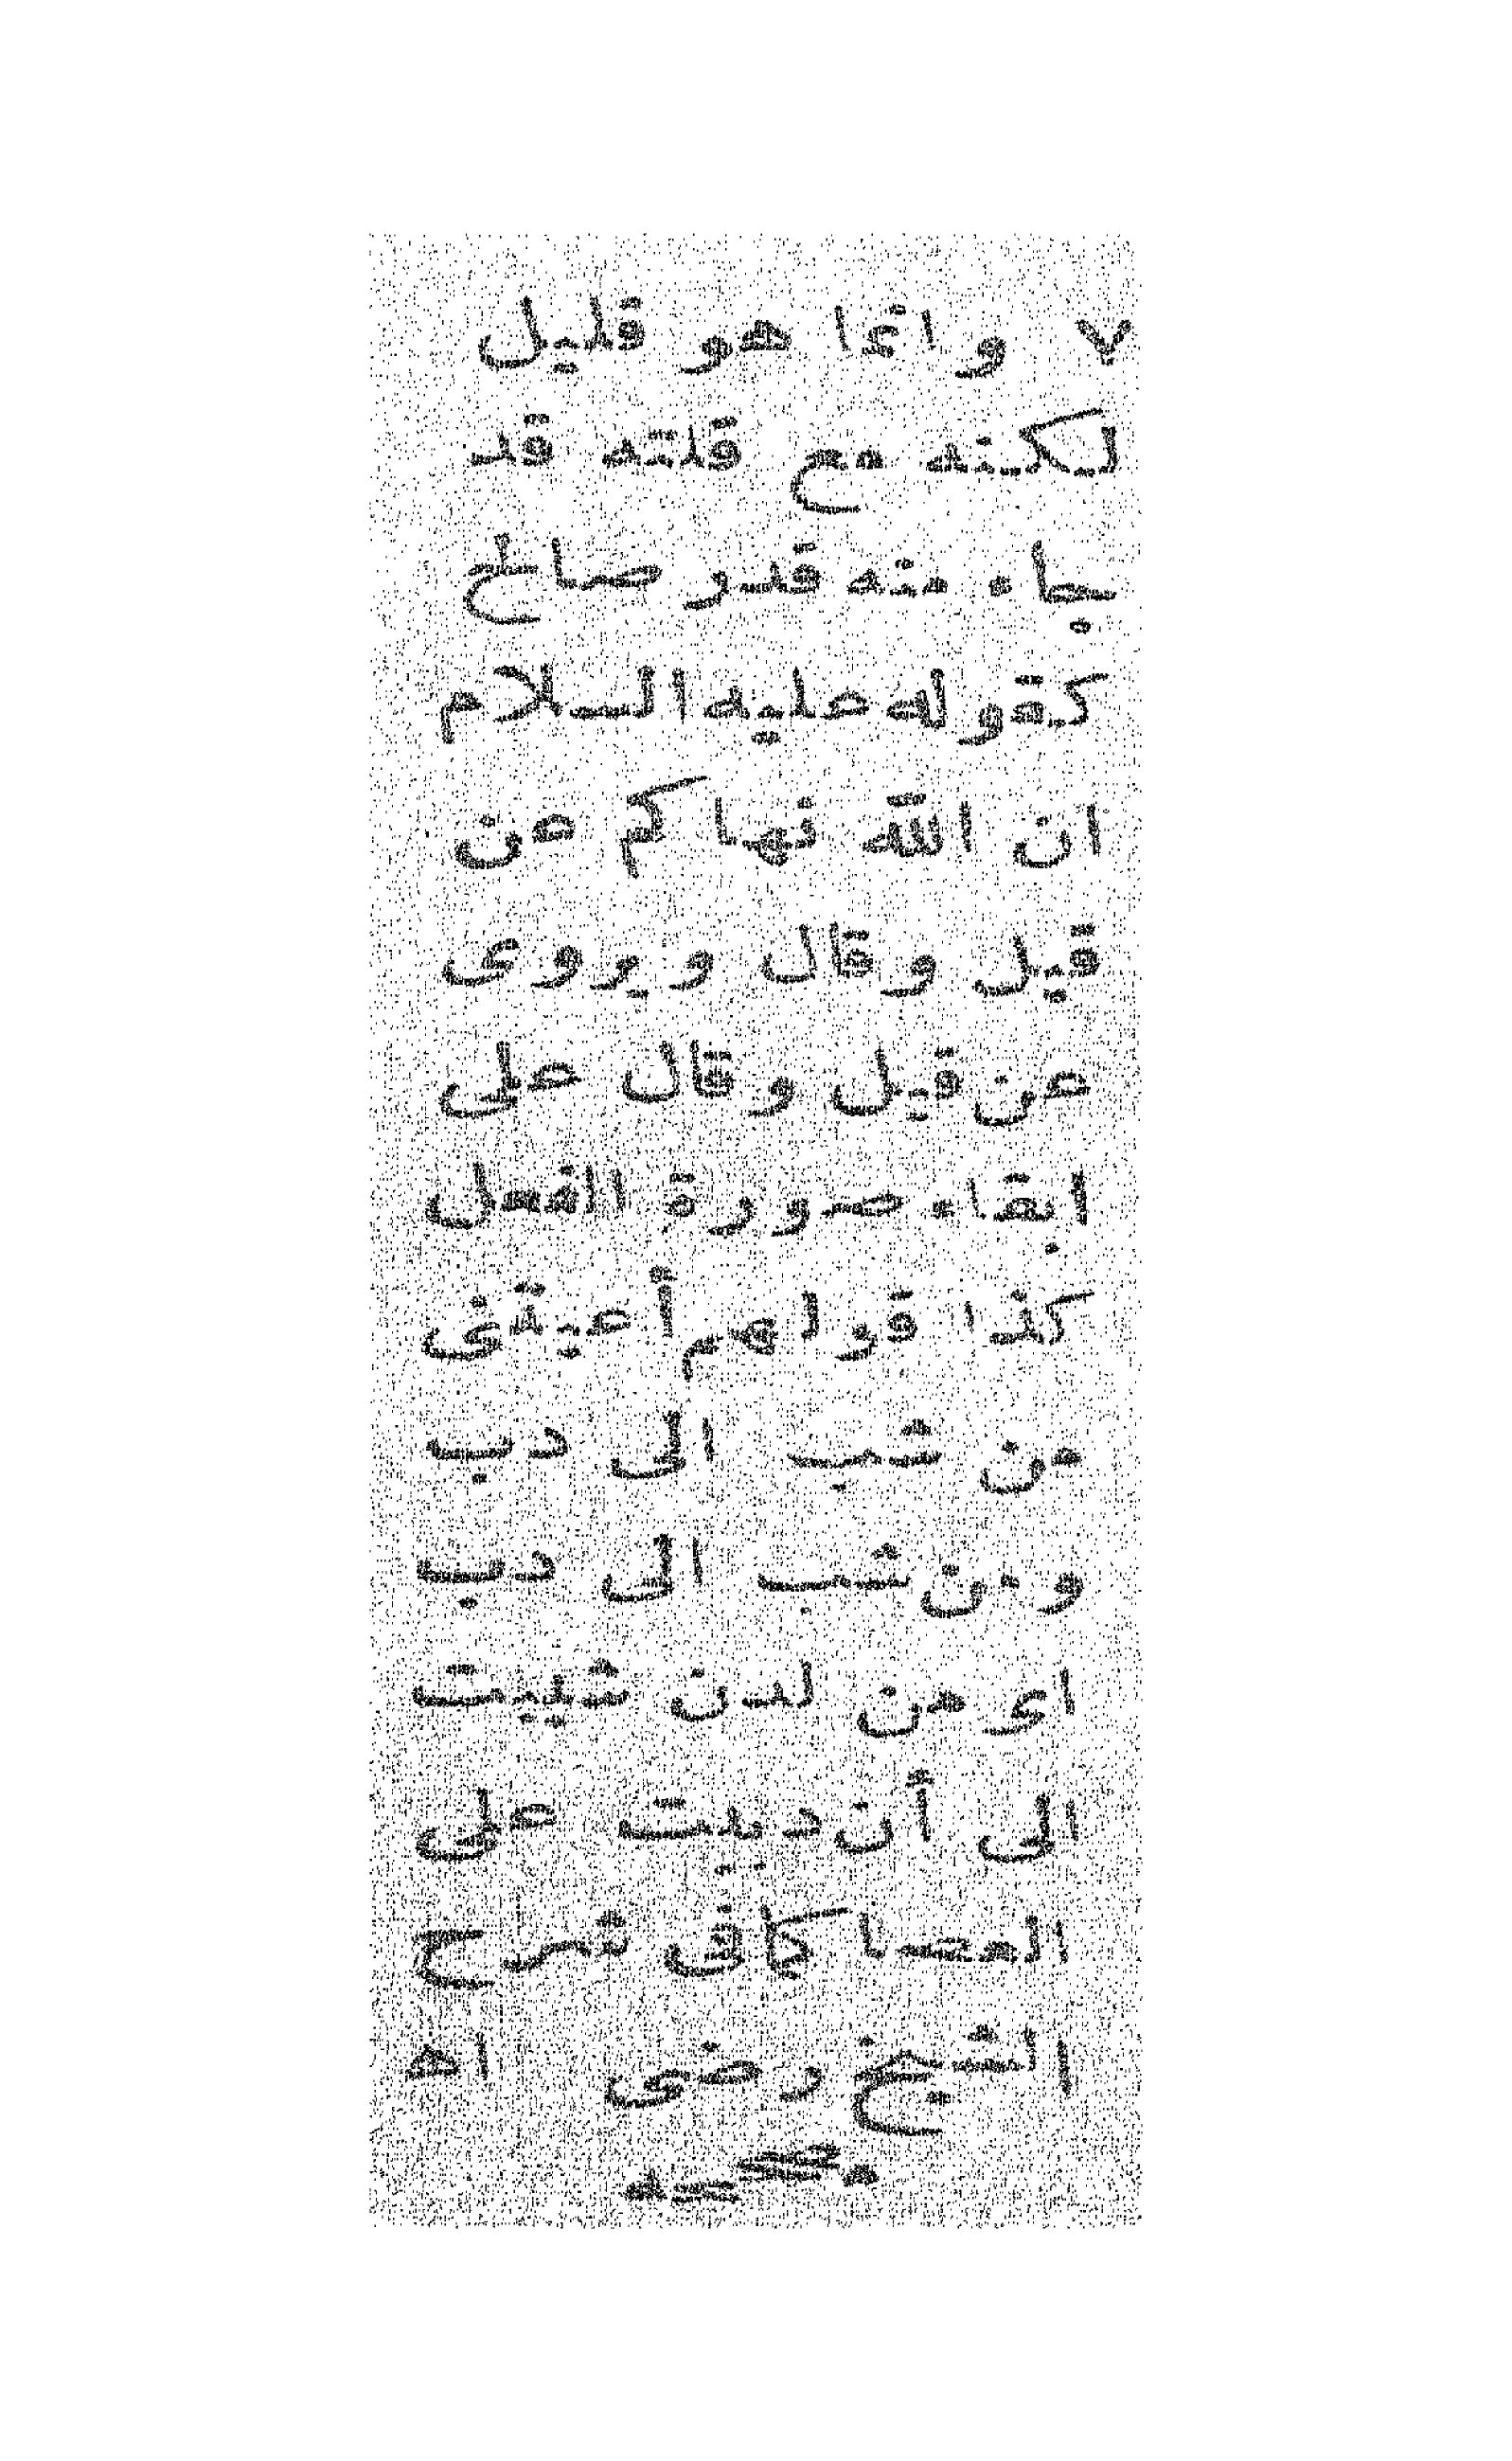 ٧ وانما هو قليل
لكنه مع قلته قد
جاء منه قدر صالح
كقوله عليه السلام
ان الله نهاكم عن
قيل وقال ويروى
عن قيل وقال على
ابقاء صورة الفعل
كذا قولهم أعيتنى
من شب الى دب
ومن شب الى دب
اى من لدن شبيت
الى أن دببت على
العصا كافى شرح
الشيخ رضى اه
مصححه